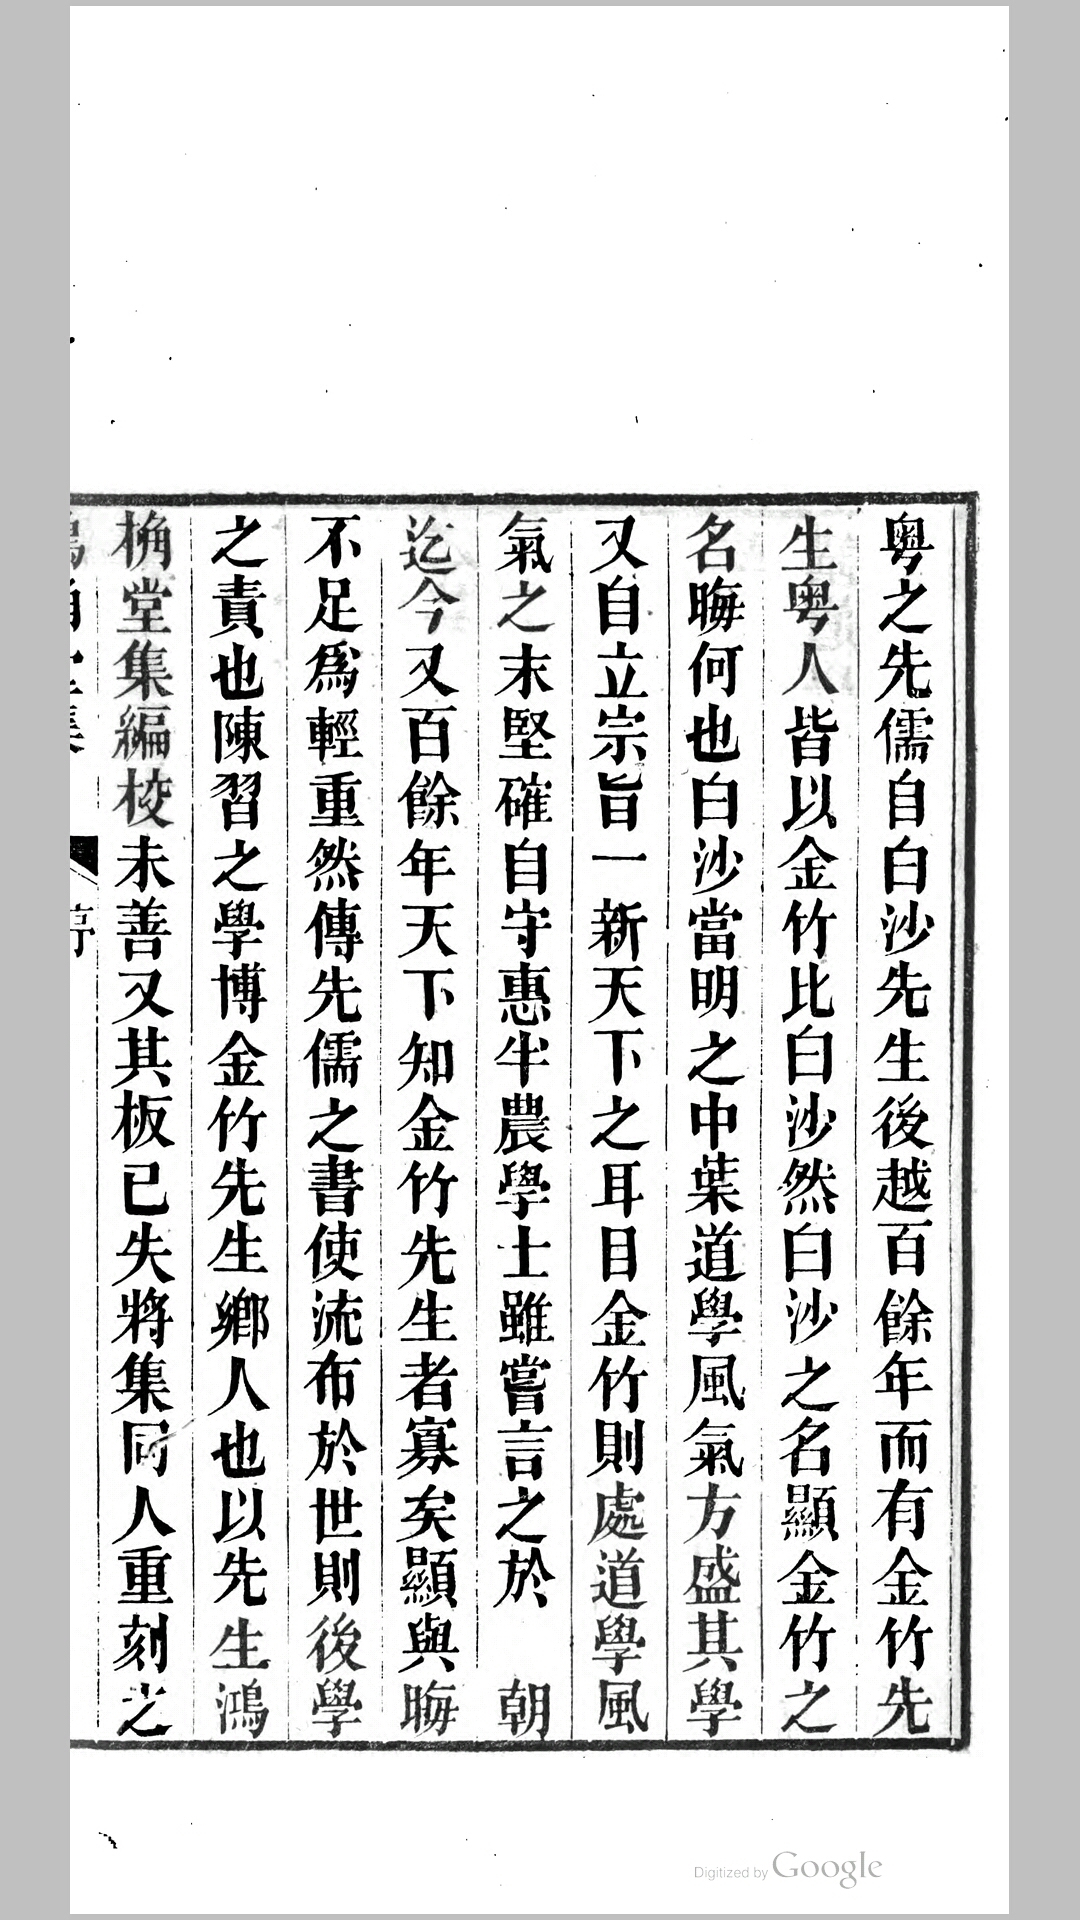 粤之先儒自白沙先生後越百餘年而有金竹先
生粤人皆以金竹比白沙然白沙之名顯金竹之
名晦何也白沙當明之中葉道學風氣方盛其學
又自立宗旨一新天下之耳目金竹則處道學風
氣之末堅確自守惠半農學士雖嘗言之於　朝
迄今又百餘年天下知金竹先生者寡矣顯與晦
不足爲輕重然傳先儒之書使流布於世則後學
之責也陳習之學博金竹先生鄉人也以先生鴻
桷堂集編校未善又其板已失將集同人重刻之
桷堂集
序
Digitized by Google